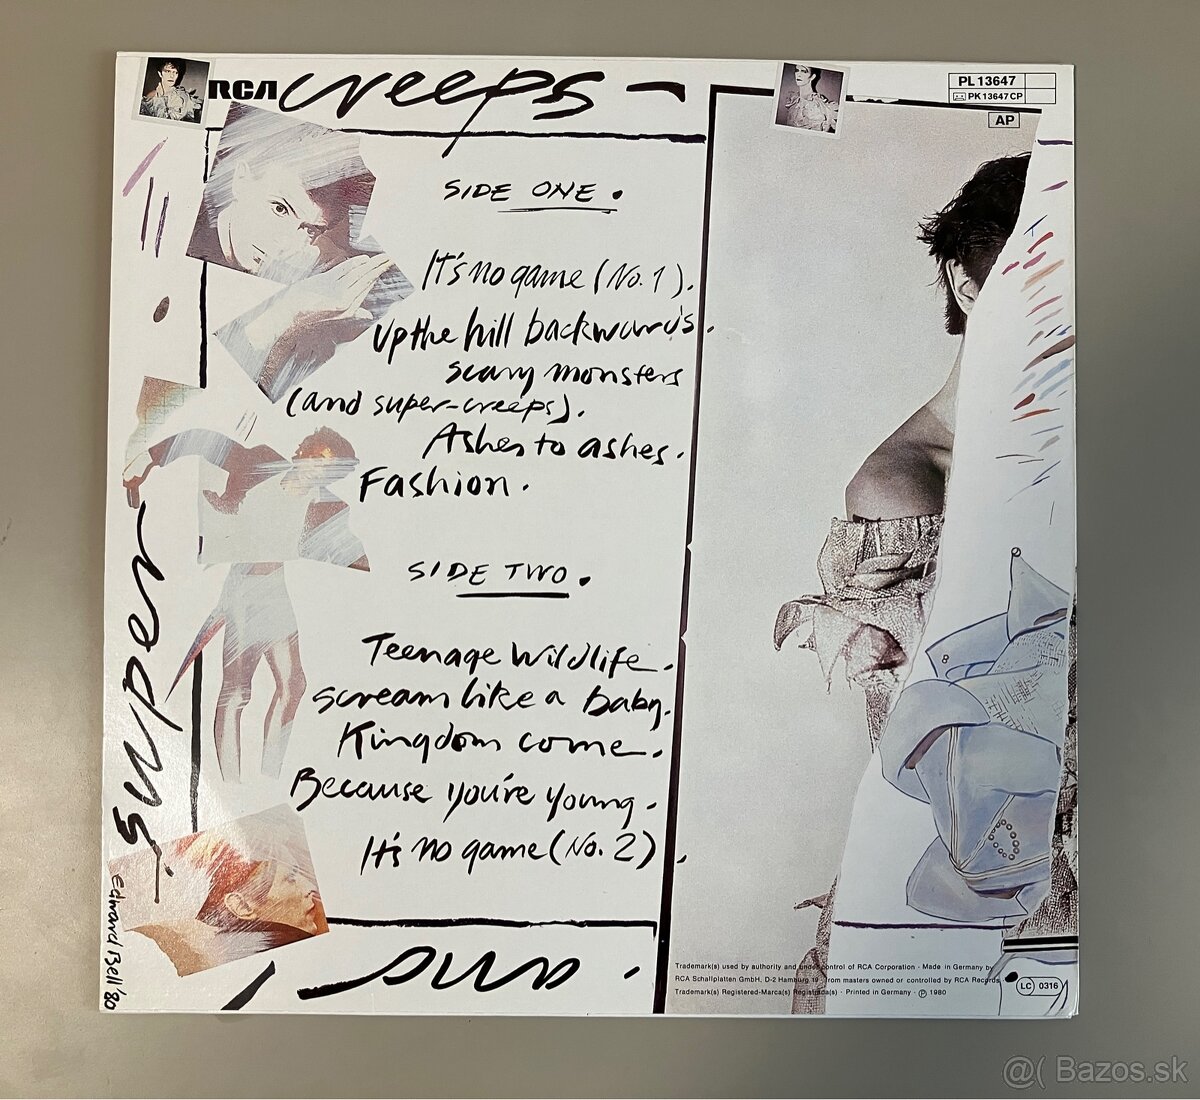 RCA creeps –
PL 13647
PK 13647 CP
AP
SIDE ONE.
It's no game (No. 1).
Up the hill backwards.
scary monsters
(and super-creeps).
Ashes to ashes.
Fashion.
SIDE TWO.
Teenage Wildlife.
scream like a baby.
Kingdom come.
Because you're young.
It's no game (No. 2).
super
and
Edward Bell '80
Trademark(s) used by authority and under control of RCA Corporation · Made in Germany by
RCA Schallplatten GmbH, D-2 Hamburg 19, from masters owned or controlled by RCA Records
Trademark(s) Registered-Marca(s) Registrada(s) · Printed in Germany · Ⓟ 1980
LC 0316
@( Bazos.sk